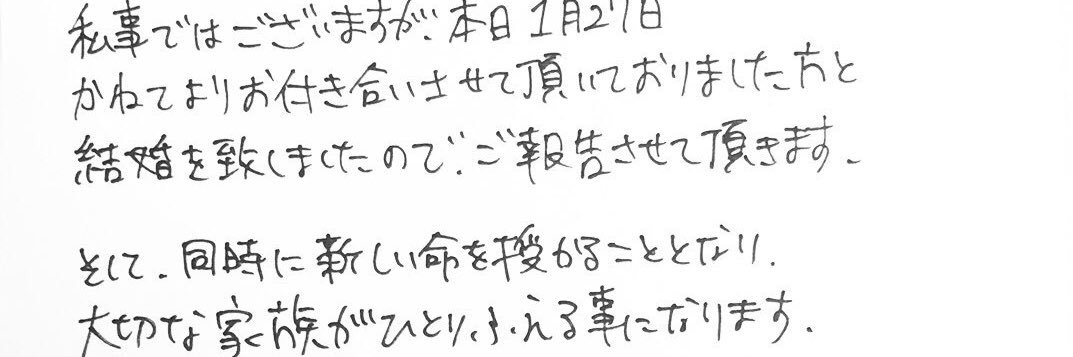 私事ではございますが、本日1月27日
かねてよりお付き合いさせて頂いておりました方と
結婚を致しましたので、ご報告させて頂きます。
そして、同時に新しい命を授かることとなり、
大切な家族がひとりふえる事になります。